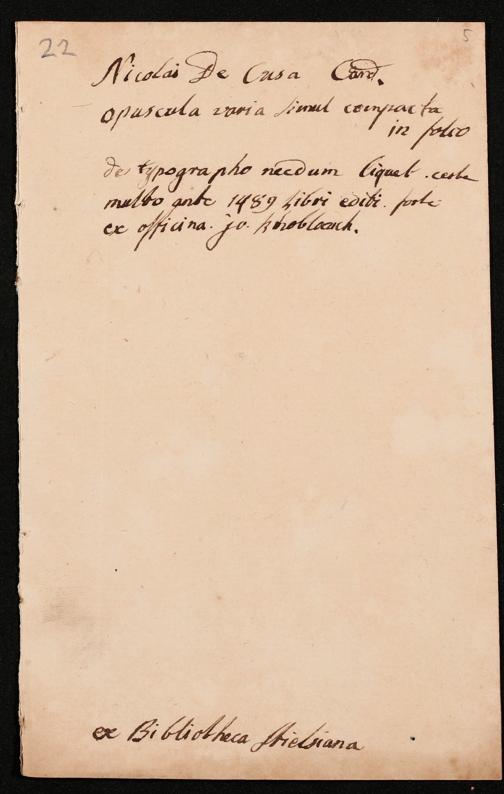 22
5
Nicolai De Cusa Card.
opuscula varia simul compacta
in folio
de typographo necdum liquet. certe
multo ante 1489 libri editi. forte
ex officina. jo. Knoblauch.
ex Bibliotheca Stielsiana